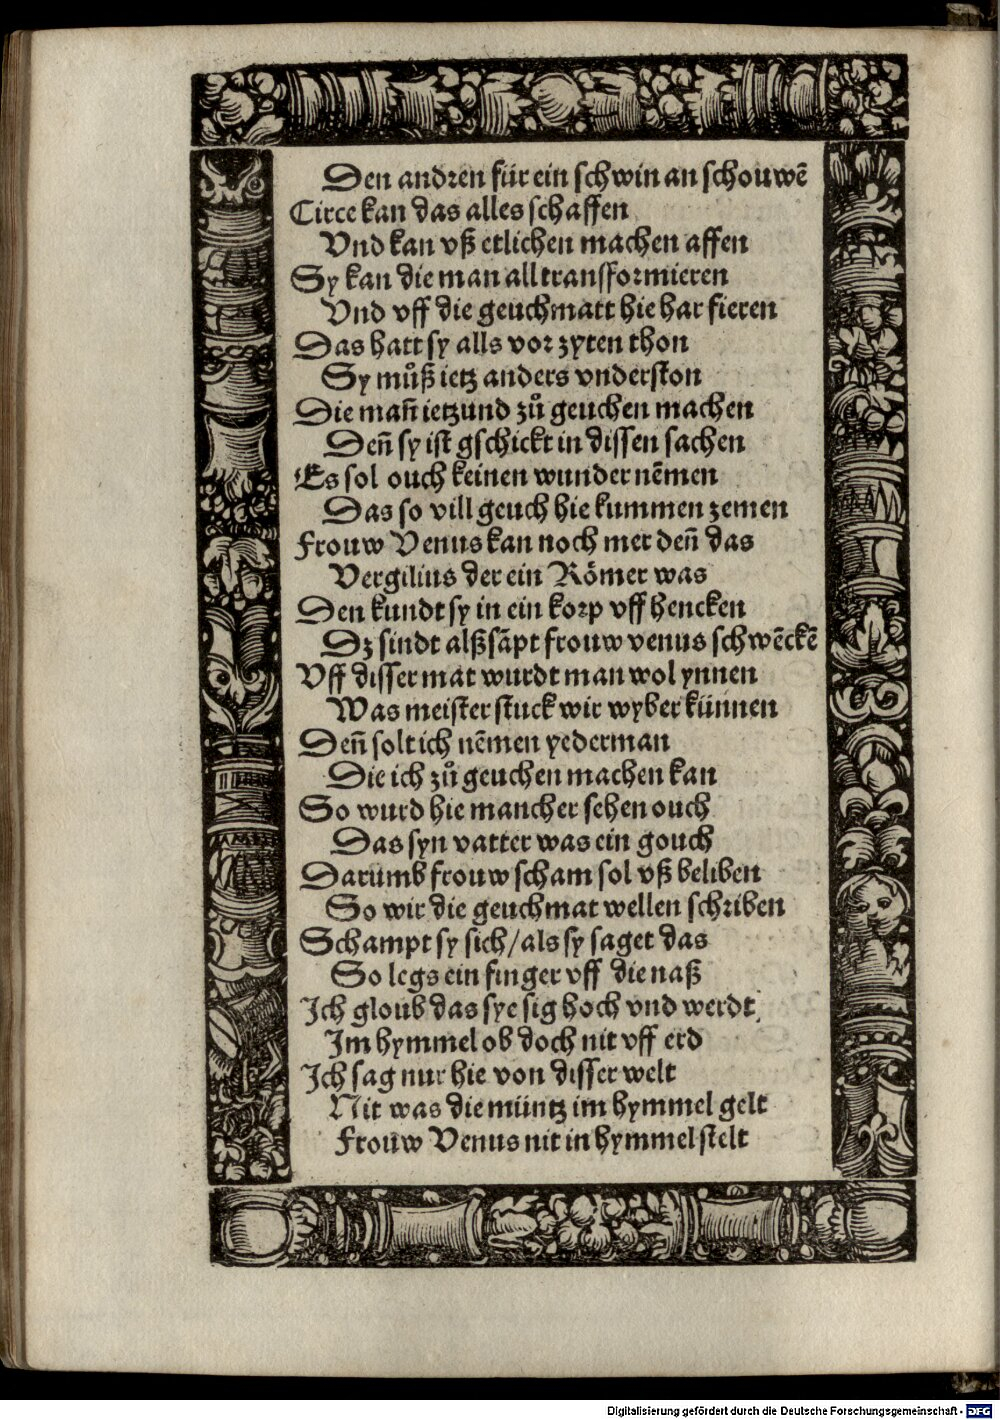 Den andren für ein schwin an schouwē
Circe kan das alles schaffen
Vnd kan vß etlichen machen affen
Sy kan die man all transformieren
Vnd vff die geuchmatt hie har fieren
Das hatt sy alls vor zyten thon
Sy můß ietz anders vnderston
Die mañ ietzund zů geuchen machen
Deñ sy ist gschickt in dissen sachen
Es sol ouch keinen wunder nēmen
Das so vill geuch hie kummen zemen
Frouw Venus kan noch mer deñ das
Vergilius der ein Römer was
Den kundt sy in ein korp vff hencken
Dz sindt alßsāpt frouw venus schwēckē
Vff disser mat wurdt man wol ynnen
Was meister stuck wir wyber künnen
Deñ solt ich nēmen yederman
Die ich zů geuchen machen kan
So wurd hie mancher sehen ouch
Das syn vatter was ein gouch
Darumb frouw scham sol vß beliben
So wir die geuchmat wellen schriben
Schampt sy sich/als sy saget das
So legs ein finger vff die naß
Ich gloub das sye sig hoch vnd werdt
Im hymmel ob doch nit vff erd
Ich sag nur hie von disser welt
Nit was die müntz im hymmel gelt
Frouw Venus nit in hymmel stelt
Digitalisierung gefördert durch die Deutsche Forschungsgemeinschaft - DFG